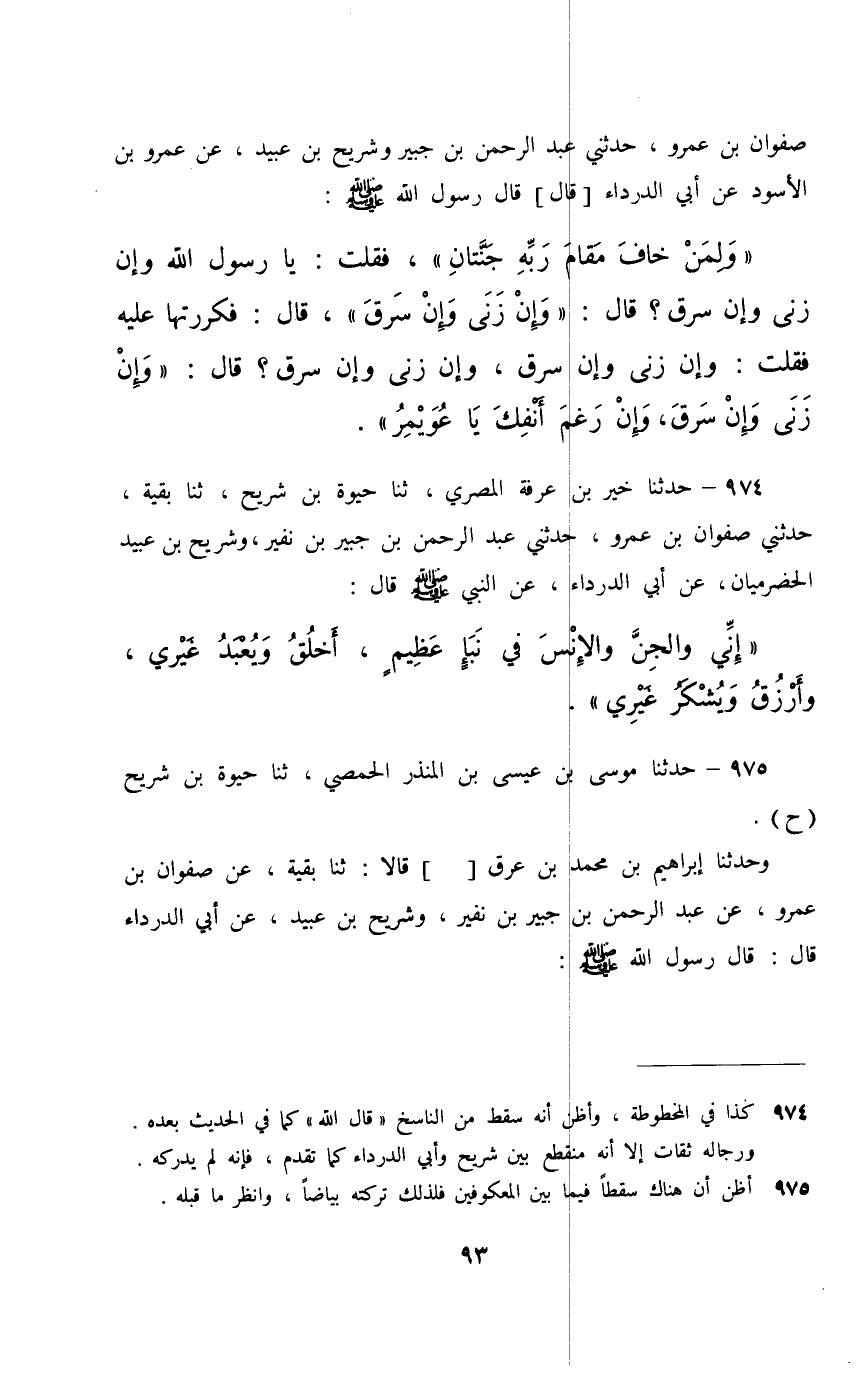 صفوان بن عمرو ، حدثني عبد الرحمن بن جبير وشريح بن عبيد ، عن عمرو بن
الأسود عن أبي الدرداء [ قال ] قال رسول الله ﷺ :
« وَلِمَنْ خافَ مَقامَ رَبِّهِ جَنَّتانِ » ، فقلت : يا رسول الله وإن
زنى وإن سرق ؟ قال : « وَإِنْ زَنَى وَإِنْ سَرقَ » ، قال : فكررتها عليه
فقلت : وإن زنى وإن سرق ، وإن زنى وإن سرق ؟ قال : « وَإِنْ
زَنَى وَإِنْ سَرَقَ، وَإِنْ رَغمَ أَنْفِكَ يَا عُوَيْمِرُ » .
٩٧٤ – حدثنا خير بن عرفة المصري ، ثنا حيوة بن شريح ، ثنا بقية ،
حدثني صفوان بن عمرو ، حدثني عبد الرحمن بن جبير بن نفير ،وشريح بن عبيد
الحضرميان، عن أبي الدرداء ، عن النبي ﷺ قال :
« إِنِّي والجِنَّ والإِنْسَ في نَبَإٍ عَظِيمٍ ، أَخلُقُ وَيُعْبَدُ غَيْري ،
وأَرْزُقُ وَيُشْكَرُ غَيْرِي » .
٩٧٥ – حدثنا موسى بن عيسى بن المنذر الحمصي ، ثنا حيوة بن شريح
( ح ) .
وحدثنا إبراهيم بن محمد بن عرق [ ] قالا : ثنا بقية ، عن صفوان بن
عمرو ، عن عبد الرحمن بن جبير بن نفير ، وشريح بن عبيد ، عن أبي الدرداء
قال : قال رسول الله ﷺ :
٩٧٤ كذا في المخطوطة ، وأظن أنه سقط من الناسخ « قال الله » كما في الحديث بعده .
ورجاله ثقات إلا أنه منقطع بين شريح وأبي الدرداء كما تقدم ، فإنه لم يدركه .
٩٧٥ أظن أن هناك سقطاً فيما بين المعكوفين فلذلك تركته بياضاً ، وانظر ما قبله .
٩٣